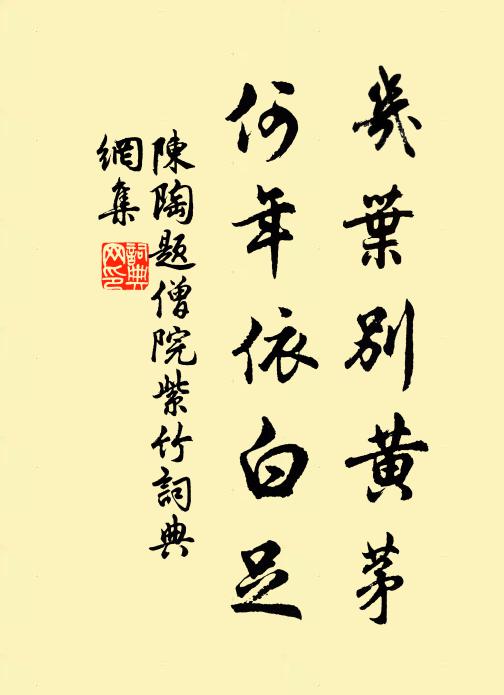 幾葉別黃茅
何年依白足
陳陶題僧院紫竹詞典
網集
詞典網印